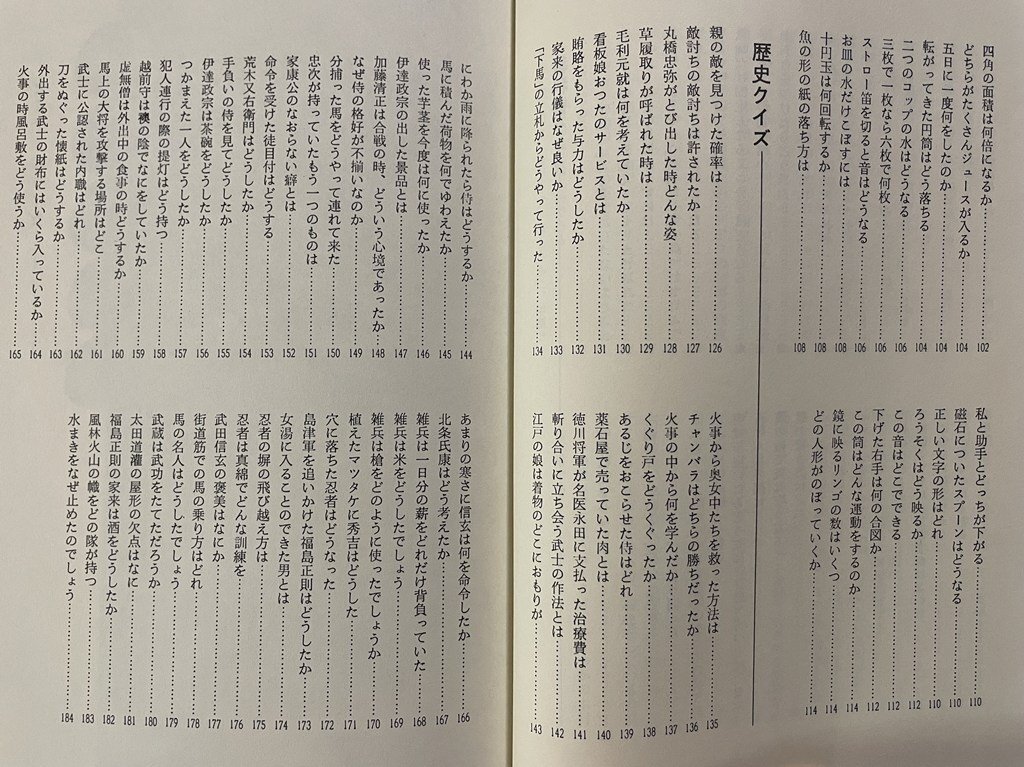 四角の面積は何倍になるか……………102
どちらがたくさんジュースが入るか……………104
五日に一度何をしたのか……………104
転がってきた円筒はどう落ちる……………104
二つのコップの水はどうなる……………106
三枚で一枚なら六枚で何枚……………106
ストロー笛を切ると音はどうなる……………106
お皿の水だけこぼすには……………108
十円玉は何回転するか……………108
魚の形の紙の落ち方は……………108
私と助手とどっちが下がる……………110
磁石についたスプーンはどうなる……………110
正しい文字の形はどれ……………110
ろうそくはどう映るか……………112
この音はどこでできる……………112
下げた右手は何の合図か……………112
この筒はどんな運動をするのか……………114
鏡に映るリンゴの数はいくつ……………114
どの人形がのぼっていくか……………114
歴史クイズ
親の敵を見つけた確率は……………126
敵討ちの敵討ちは許されたか……………127
丸橋忠弥がとび出した時どんな姿……………128
草履取りが呼ばれた時は……………129
毛利元就は何を考えていたか……………130
看板娘おつたのサービスとは……………131
賄賂をもらった与力はどうしたか……………132
家来の行儀はなぜ良いか……………133
「下馬」の立札からどうやって行った……………134
火事から奥女中たちを救った方法は……………135
チャンバラはどちらの勝ちだったか……………136
火事の中から何を学んだか……………137
くぐり戸をどうくぐったか……………138
あるじをおこらせた侍はどれ……………139
薬石屋で売っていた肉とは……………140
徳川将軍が名医永田に支払った治療費は……………141
斬り合いに立ち会う武士の作法とは……………142
江戸の娘は着物のどこにおもりが……………143
にわか雨に降られたら侍はどうするか……………144
馬に積んだ荷物を何でゆわえたか……………145
使った芋茎を今度は何に使ったか……………146
伊達政宗の出した景品とは……………147
加藤清正は合戦の時、どういう心境であったか……………148
なぜ侍の格好が不揃いなのか……………149
分捕った馬をどうやって連れて来た……………150
忠次が持っていたもう一つのものは……………151
家康公のなおらない癖とは……………152
命令を受けた徒目付はどうする……………153
荒木又右衛門はどうしたか……………154
手負いの侍を見てどうしたか……………155
伊達政宗は茶碗をどうしたか……………156
つかまえた一人をどうしたか……………157
犯人連行の際の提灯はどう持つ……………158
越前守は襖の陰でなにをしていたか……………159
虚無僧は外出中の食事の時どうするか……………160
馬上の大将を攻撃する場所はどこ……………161
武士に公認された内職はどれ……………162
刀をぬぐった懐紙はどうするか……………163
外出する武士の財布にはいくら入っているか……………164
火事の時風呂敷をどう使うか……………165
あまりの寒さに信玄は何を命令したか……………166
北条氏康はどう考えたか……………167
雑兵は一日分の薪をどれだけ背負っていた……………168
雑兵は米をどうしたでしょう……………169
雑兵は槍をどのように使ったでしょうか……………170
植えたマツタケに秀吉はどうした……………171
穴に落ちた忍者はどうなった……………172
島津軍を追いかけた福島正則はどうしたか……………173
女湯に入ることのできた男とは……………174
忍者の塀の飛び越え方は……………175
忍者は真綿でどんな訓練を……………176
武田信玄の褒美はなにか……………177
街道筋での馬の乗り方はどれ……………178
馬の名人はどうしたでしょう……………179
武蔵は武功をたてただろうか……………180
太田道灌の屋形の欠点はなに……………181
福島正則の家来は酒をどうしたか……………182
風林火山の幟をどの隊が持つ……………183
水まきをなぜ止めたのでしょう……………184